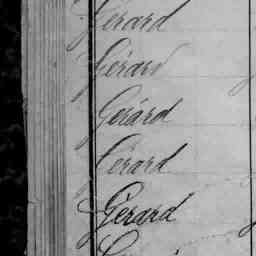 Gerard
Gérard
Gérard
Gérard
Gérard